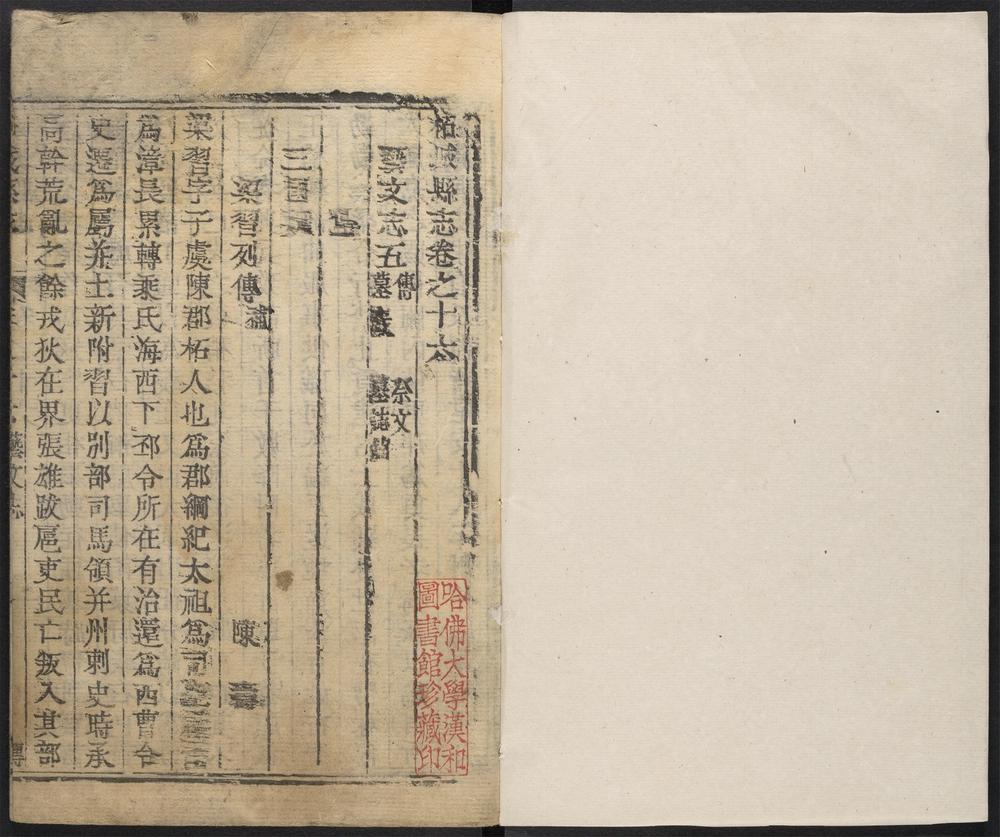 柘城縣志卷之十六
藝文志五 傳 祭文 墓 墓誌銘
傳
三國
梁習列傳 陳 壽
梁習字子虞陳郡柘人也爲郡綱紀太祖爲司空
爲漳長累轉乘氏海西下邳令所在有治還爲西曹令
史遷爲屬并土新附習以別部司馬領并州刺史時承
高幹荒亂之餘戎狄在界張雄跋扈吏民亡叛入其部
藝文志
傳
哈佛大學漢和
圖書館珍藏印